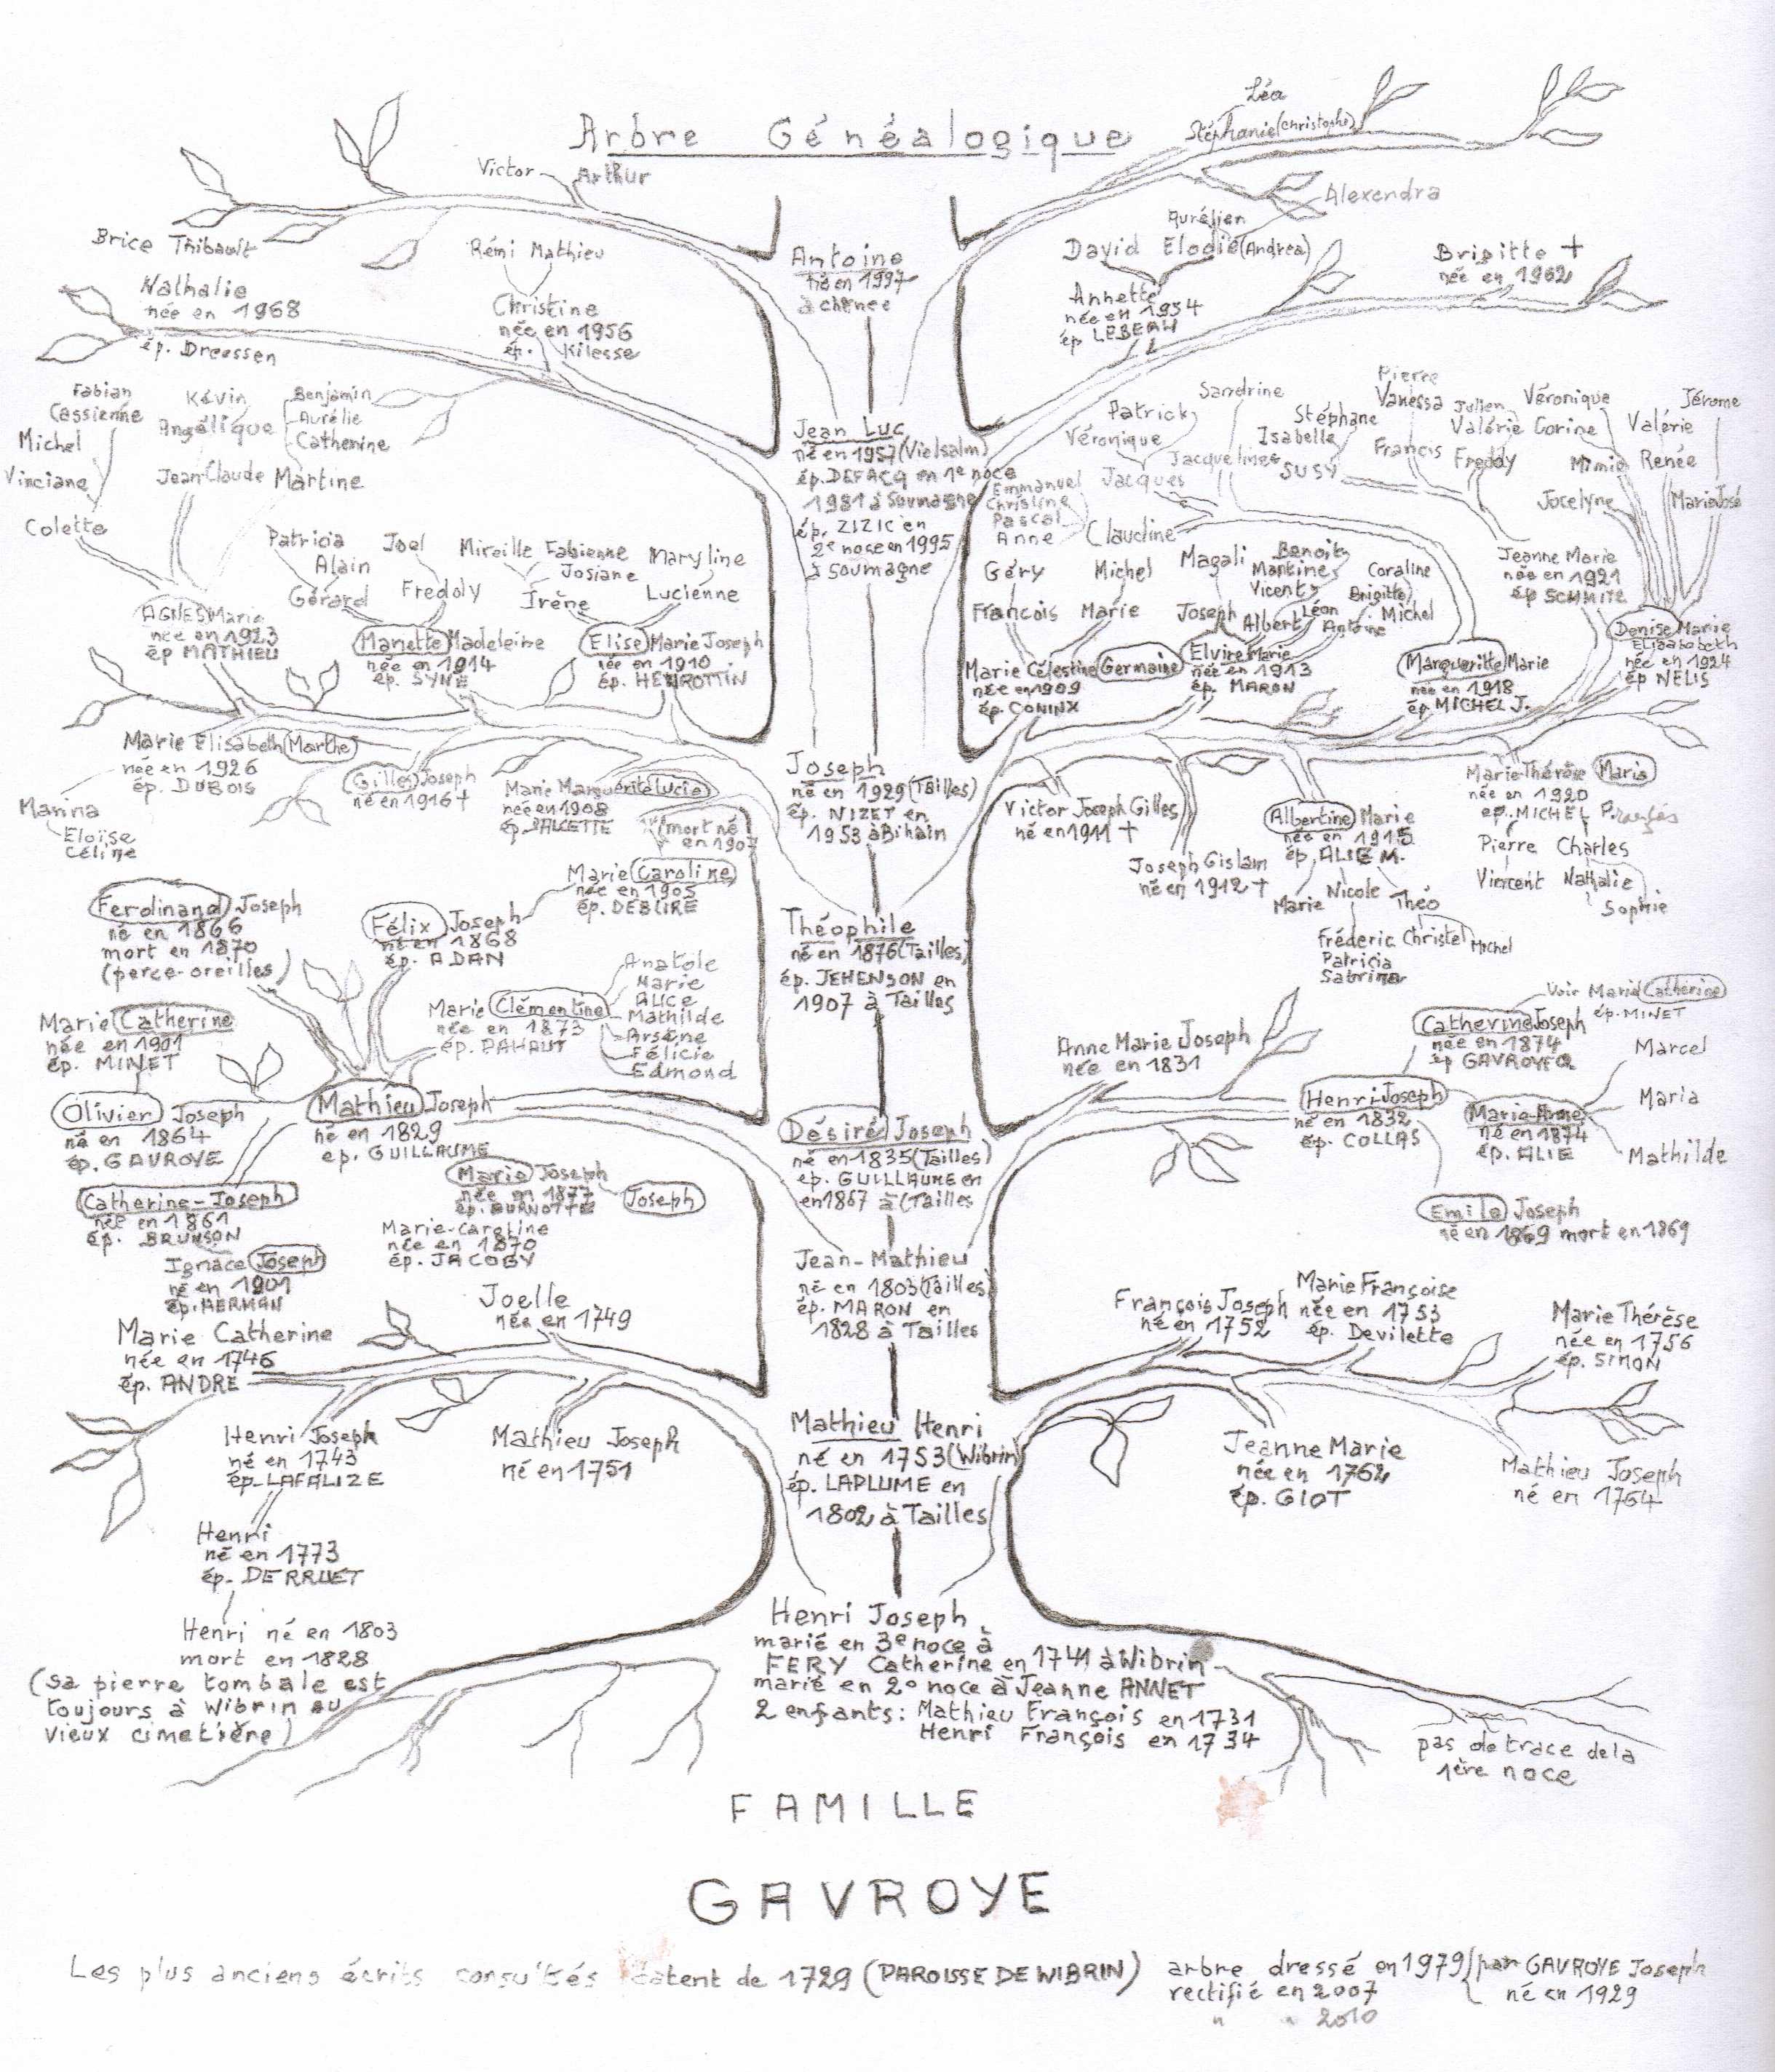 Arbre Généalogique
Léa
Stéphanie (Christophe)
Victor
Arthur
Alexendra
Aurélien
David Elodie (Andrea)
Brigitte +
née en 1962
Annette
née en 1954
ép LEBEAU
Brice Thibault
Nathalie
née en 1968
ép. Dreessen
Rémi Mathieu
Christine
née en 1956
ép. Kilesse
Antoine
né en 1997
à chenee
Fabian
Cassienne
Michel
Vinciane
Colette
Kévin
Angélique
Jean Claude
Benjamin
Aurélie
Catherine
Martine
Jean Luc
né en 1957 (Vielsalm)
ép. DEFACQ en 1e noce
1981 à Soumagne
ép. ZIZIC en
2e noce en 1995
à Soumagne
Patrick
Véronique
Jacques
Sandrine
Jacqueline
Stéphane
Isabelle
SUSY
Pierre
Vanessa
Francis
Julien
Valérie
Freddy
Véronique
Corine
Mimie
Jocelyne
Valérie
Renée
Jérome
Marie José
Emmanuel
Christine
Pascal
Anne
Claudine
Patricia
Alain
Gérard
Joel
Freddy
Mireille Fabienne
Josiane
Irène
Maryline
Lucienne
Géry
François
Michel
Marie
Magali
Joseph
Benoit
Martine
Vicent
Albert
Léon
Antoine
Coraline
Brigitte
Michel
Jeanne Marie
née en 1921
ép SCHMITZ
AGNES Maria
née en 1923
ép MATHIEU
Manette Madeleine
née en 1914
ép. SYNE
Elise Marie Joseph
née en 1910
ép. HENROTTIN
Marie Célestine Germaine
née en 1909
ép. CONINX
Elvire Marie
née en 1913
ép. MARON
Margueritte Marie
née en 1918
ép. MICHEL J.
Denise Marie
Elisabeth
née en 1924
ép NELIS
Marie Elisabeth (Marthe)
née en 1926
ép. DUBOIS
Marina
Eloïse
Céline
Gilles Joseph
né en 1916 +
Marie Marguerite Lucie
née en 1908
(mort né
en 1907
Joseph
né en 1929 (Tailles)
ép. NIZET en
1953 à Bihain
Victor Joseph Gilles
né en 1911 +
Joseph Gislain
né en 1912 +
Albertine Marie
née en 1915
ép. ALIE M.
Marie
Nicole
Théo
Fréderic Christel Michel
Patricia
Sabrina
Marie Thérèse Maria
née en 1920
ép. MICHEL
Pierre Charles
Viencent Nathalie
Sophie
Marie Caroline
née en 1905
ép. DEBLIRE
Ferdinand Joseph
né en 1866
mort en 1870
(perce-oreilles)
Félix Joseph
né en 1868
ép. ADAN
Théophile
né en 1876 (Tailles)
ép. JEHENSON en
1907 à Tailles
Marie Catherine
née en 1901
ép. MINET
Marie Clémentine
née en 1873
ép. PAHAUT
Anatole
Marie
Alice
Mathilde
Arsène
Félicie
Edmond
Anne Marie Joseph
née en 1831
voir Marie Catherine
ép. MINET
Catherine Joseph
née en 1874
ép GAVROYE
Marcel
Maria
Mathilde
Olivier Joseph
né en 1864
ép. GAVROYE
Mathieu Joseph
né en 1829
ep. GUILLAUME
Désiré Joseph
né en 1835 (Tailles)
ep. GUILLAUME en
en 1867 à (Tailles
Henri Joseph
né en 1832
ép. COLLAS
Marie-Anne
né en 1874
ép. ALIE
Catherine-Joseph
née en 1861
ép. BRUNSON
Marie Joseph
née en 1877
ép. BURNOTTE
Joseph
Emile Joseph
né en 1869 mort en 1869
Marie-Caroline
née en 1870
ép. JACOBY
Ignace Joseph
né en 1901
ép. HERMAN
Jean-Mathieu
né en 1803 (Tailles)
ép. MARON en
1828 à Tailles
Marie Catherine
née en 1746
ép. ANDRE
Joelle
née en 1749
François Joseph
né en 1752
Marie Françoise
née en 1753
ép. Devilette
Marie Thérèse
née en 1756
ép. SIMON
Henri Joseph
né en 1743
ép. LAFALIZE
Mathieu Joseph
né en 1751
Mathieu Henri
né en 1753 (Wibrin)
ép. LAPLUME en
1802 à Tailles
Jeanne Marie
née en 1762
ép. GIOT
Mathieu Joseph
né en 1764
Henri
né en 1773
ép. DERRUET
Henri né en 1803
mort en 1828
(sa pierre tombale est
toujours à Wibrin au
vieux cimetière)
Henri Joseph
marié en 3e noce à
FERY Catherine en 1741 à Wibrin
marié en 2e noce à Jeanne ANNET
2 enfants: Mathieu François en 1731
Henri François en 1734
pas de trace de la
1ère noce
FAMILLE
GAVROYE
Les plus anciens écrits consultés datent de 1729 (PAROISSE DE WIBRIN) arbre dressé en 1979 par GAVROYE Joseph
rectifié en 2007 né en 1929
" " 2010